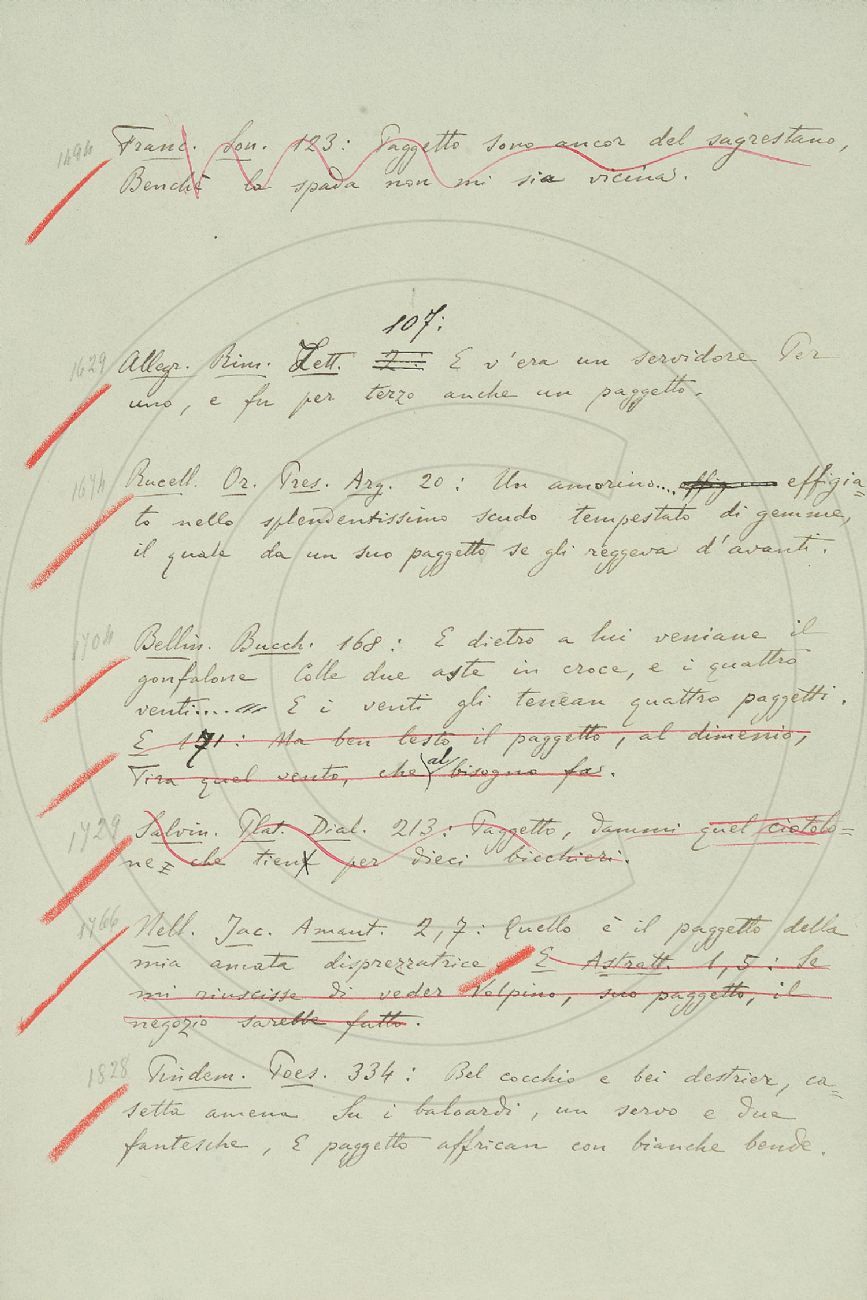 1494 Franc. Son. 123: Paggetto sono ancor del sagrestano,
Benchè la spada non mi sia vicina.
107:
1629 Allegr. Rim. Lett. 2: E v'era un servidore Per
uno, e fu per terzo anche un paggetto.
1674 Rucell. Or. Tres. Arg. 20: Un amorino... effigia=
to nello splendentissimo scudo tempestato di gemme,
il quale da un suo paggetto se gli reggeva d'avanti.
1704 Bellin. Bucch. 168: E dietro a lui veniane il
gonfalone Colle due aste in croce, e i quattro
venti.... E i venti gli tenean quattro paggetti.
E 171: Ma ben lesto il paggetto, al dimenio,
Tira quel vento, che al bisogno fa.
1729 Salvin. Plat. Dial. 213: Paggetto, dammi quel ciotolo=
ne che tien per dieci bicchieri.
1766 Nell. Jac. Amant. 2, 7: Quello è il paggetto della
mia amata disprezzatrice. E Astratt. 1, 5: Se
mi riuscisse di veder Volpino, suo paggetto, il
negozio sarebbe fatto.
1828 Pindem. Poes. 334: Bel cocchio e bei destrier, ca=
setta amena Su i baloardi, un servo e due
fantesche, E paggetto affrican con bianche bende.